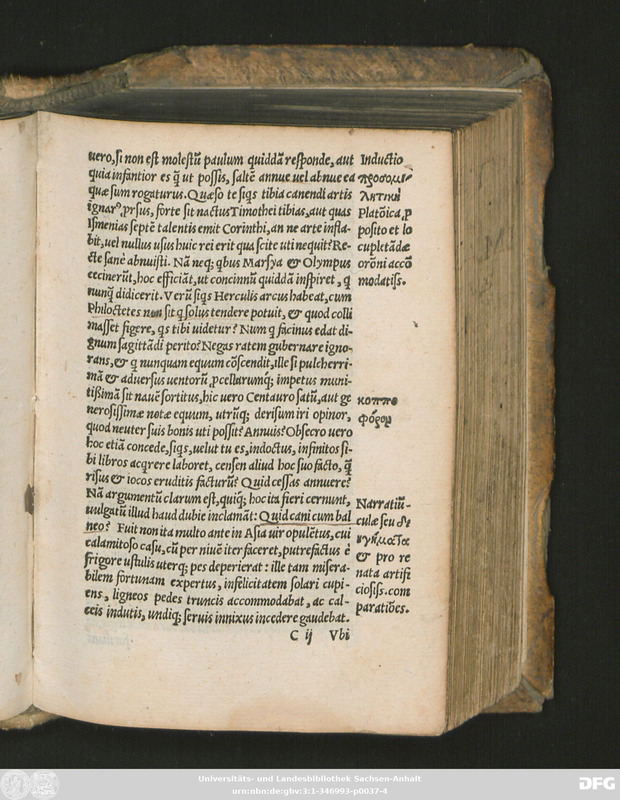 uero, si non est molestũ paulum quiddã responde, aut
quia infantior es q̃ ut possis, saltẽ annue uel abnue ea
quæ sum rogaturus. Quæso te siqs tibia canendi artis
ignarꝰ prsus, forte sit nactus Timothei tibias, aut quas
Ismenias septẽ talentis emit Corinthi, an ne arte infla-
bit, uel nullus usus huic rei erit qua scite uti nequit? Re-
cte sanè abnuisti. Nã neq; qbus Marsya & Olympus
cecinerũt, hoc efficiãt, ut concinnũ quiddã inspiret, q
nunq̃ didicerit. Verũ siqs Herculis arcus habeat, cum
Philoctetes non sit q solus tendere potuit, & quod colli
masset figere, qs tibi uidetur? Num q facinus edat di-
gnum sagittãdi perito? Negas ratem gubernare igno-
rans, & q nunquam equum cõscendit, ille si pulcherri-
mã & aduersus uentorũ pcellarumq; impetus muni-
tißimã sit nauẽ sortitus, hic uero Centauro satũ, aut ge
nerosissimæ notæ equum, utrũq; derisum iri opinor,
quod neuter suis bonis uti possit? Annuis? Obsecro uero
hoc etiã concede, siqs, uelut tu es, indoctus, infinitos si-
bi libros acqrere laboret, censen aliud hoc suo facto, q̃
risus & iocos eruditis facturũ? Quid cessas annuere?
Nã argumentũ clarum est, quiq; hoc ita fieri cernunt,
uulgatũ illud haud dubie inclamãt: Quid cani cum bal
neo? Fuit non ita multo ante in Asia uir opulẽtus, cui
calamitoso casu, cũ per niuẽ iter faceret, putrefactus ẽ
frigore ustulis uterq; pes deperierat: ille tam misera-
bilem fortunam expertus, infelicitatem solari cupi-
ens, ligneos pedes truncis accommodabat, ac cal-
ceis indutis, undiq; seruis innixus incedere gaudebat.
C ij Vbi
Inductio
προσομι-
λητικὴ
Platõica, p
posito et lo
cupletãdæ
orõni accõ
modatiss.
κοππο
φόρον
Narratiũ-
culæ seu δι
ηγήματα
& pro re
nata artifi
ciosiss. com
paratiões.
Universitäts- und Landesbibliothek Sachsen-Anhalt
urn:nbn:de:gbv:3:1-346993-p0037-4
DFG